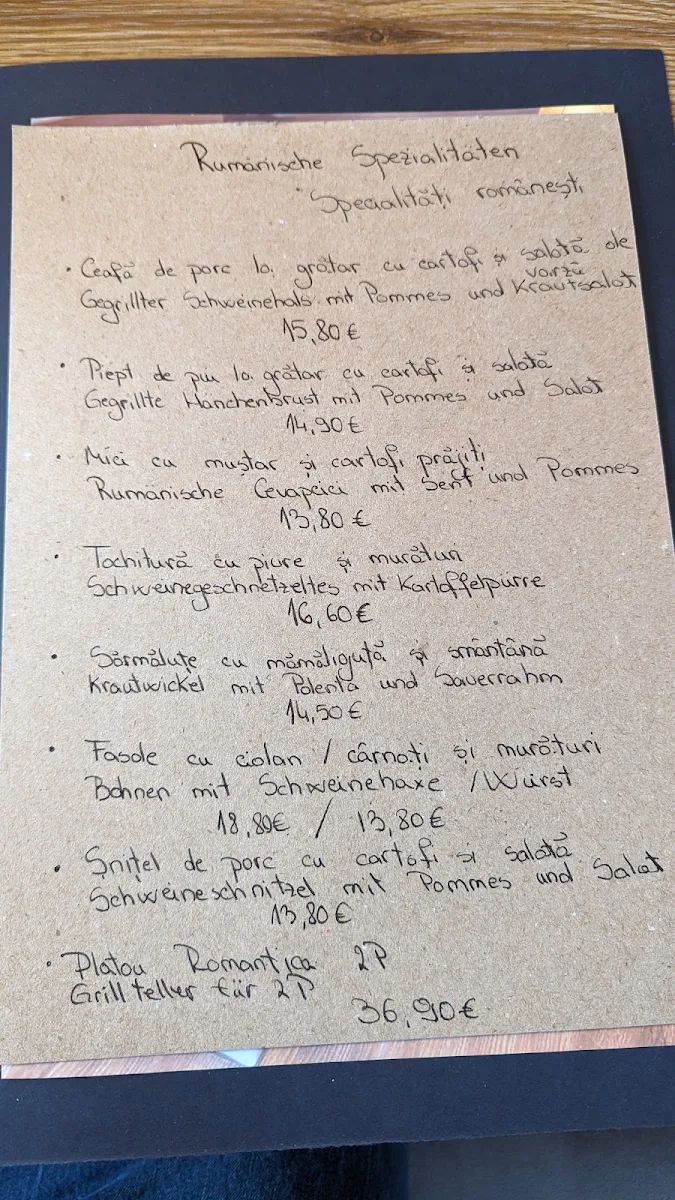 Rumänische Spezialitäten
Specialități românești
• Ceafă de porc la grătar cu cartofi și salată de varză
Gegrillter Schweinehals mit Pommes und Krautsalat
15,80 €
• Piept de pui la grătar cu cartofi și salată
Gegrillte Hänchenbrust mit Pommes und Salat
14,90 €
• Mici cu muștar și cartofi prăjiți
Rumänische Cevapcici mit Senf und Pommes
13,80 €
• Tochitură cu piure și murături
Schweinegeschnetzeltes mit Kartoffelpürre
16,60 €
• Sărmăluțe cu mămăliguță și smântână
Krautwickel mit Polenta und Sauerrahm
14,50 €
• Fasole cu ciolan / cârnați și murături
Bohnen mit Schweinehaxe / Würst
18,80€ / 13,80€
• Șnițel de porc cu cartofi si salată
Schweineschnitzel mit Pommes und Salat
13,80€
• Platou Romantica 2P
Grillteller für 2P
36,90€